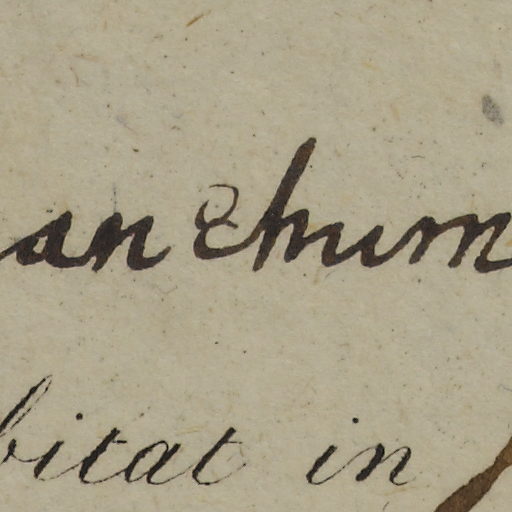 anchum
bitat in